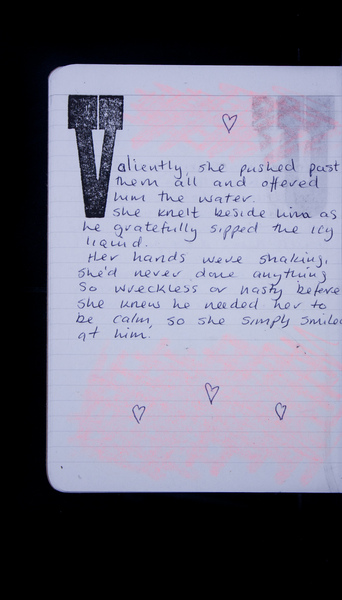 Valiently, she pushed past
them all and offered
him the water.
She knelt beside him as
he gratefully sipped the icy
liquid.
Her hands were shaking,
she'd never done anything
so wreckless or nasty before
she knew he needed her to
be calm, so she simply smiled
at him.